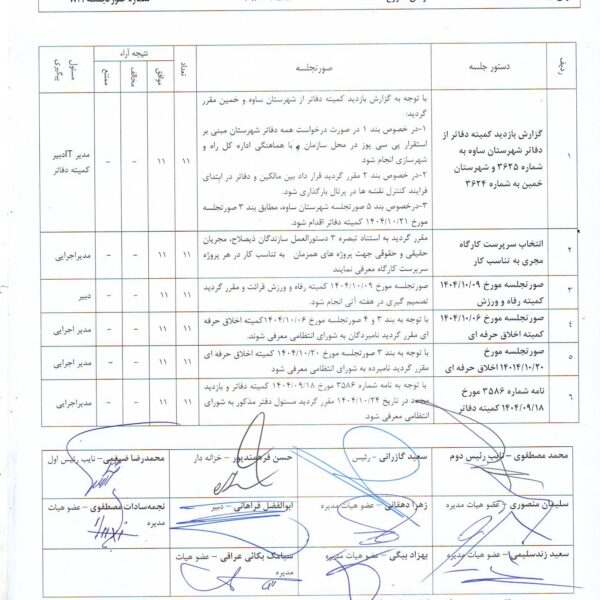 ردیف
دستور جلسه
صورتجلسه
نتیجه آراء
تعداد
موافق
مخالف
ممتنع
مسئول
پیگیری
۱
گزارش بازدید کمیته دفاتر از
دفاتر شهرستان ساوه به
شماره ۳۶۲۵ و شهرستان
خمین به شماره ۳۶۲۴
با توجه به گزارش بازدید کمیته دفاتر از شهرستان ساوه و خمین مقرر
گردید:
۱-در خصوص بند ۱ در صورت درخواست همه دفاتر شهرستان مبنی بر
استقرار پی سی یوز در محل سازمان و با هماهنگی اداره کل راه و
شهرسازی انجام شود
۲-در خصوص بند ۲ مقرر گردید قرار داد بین مالکین و دفاتر در ابتدای
فرایند کنترل نقشه ها در پرتال بارگذاری شود.
۳-درخصوص بند ۵ صورتجلسه شهرستان ساوه، مطابق بند ۳ صورتجلسه
مورخ ۱۴۰۴/۱۰/۲۱ کمیته دفاتر اقدام شود.
۱۱
۱۱
–
–
مدیر ITدبیر
کمیته دفاتر
۲
انتخاب سرپرست کارگاه
مجری به تناسب کار
مقرر گردید به استناد تبصره ۳ دستورالعمل سازندگان ذیصلاح، مجریان
حقیقی و حقوقی جهت پروژه های همزمان به تناسب کار در هر پروژه
سرپرست کارگاه معرفی نمایند
۱۱
۱۱
–
–
مدیراجرایی
۳
صورتجلسه مورخ ۱۴۰۴/۱۰/۰۹
کمیته رفاه و ورزش
صورتجلسه مورخ ۱۴۰۴/۱۰/۰۹ کمیته رفاه و ورزش قرائت و مقرر گردید
تصمیم گیری در هفته آتی انجام شود.
۱۱
۱۱
–
–
دبیر
۴
صورتجلسه مورخ ۱۴۰۴/۱۰/۰۶
کمیته اخلاق حرفه ای
با توجه به بند ۳ و ۴ صورتجلسه مورخ ۱۴۰۴/۱۰/۰۶کمیته اخلاق حرفه
ای مقرر گردید نامبردگان به شورای انتظامی معرفی شوند.
۱۱
۱۱
–
–
مدیر اجرایی
۵
صورتجلسه مورخ
۱۴۰۱۴/۱۰/۲۰ اخلاق حرفه ای
با توجه به بند ۳ صورتجلسه مورخ ۱۴۰۴/۱۰/۲۰ کمیته اخلاق حرفه ای
مقرر گردید نامبرده به شورای انتظامی معرفی شود
۱۱
۱۱
–
–
مدیر اجرایی
۶
نامه شماره ۳۵۸۶ مورخ
۱۴۰۴/۰۹/۱۸ کمیته دفاتر
با توجه به نامه شماره ۳۵۸۶ مورخ ۱۴۰۴/۰۹/۱۸ کمیته دفاتر و بازدید
مجدد در تاریخ ۱۴۰۴/۱۰/۲۴ مقرر گردید مسئول دفتر مذکور به شورای
انتظامی معرفی شود.
۱۱
۱۱
–
–
مدیراجرایی
محمد مصطفوی – نایب رئیس دوم
سعید گازرانی – رئیس
حسن فرهمندپور – خزانه دار
محمدرضا ضیغمی – نایب رئیس اول
سلیمان منصوری – عضو هیات مدیره
زهرا دهقانی – عضو هیات مدیره
ابوالفضل فراهانی – دبیر
نجمه‌سادات مصطفوی – عضو هیات
مدیره
سعید زندسلیمی – عضو هیات مدیره
بهزاد بیگی – عضو هیات مدیره
سیامک بکائی عراقی – عضو هیات
مدیره